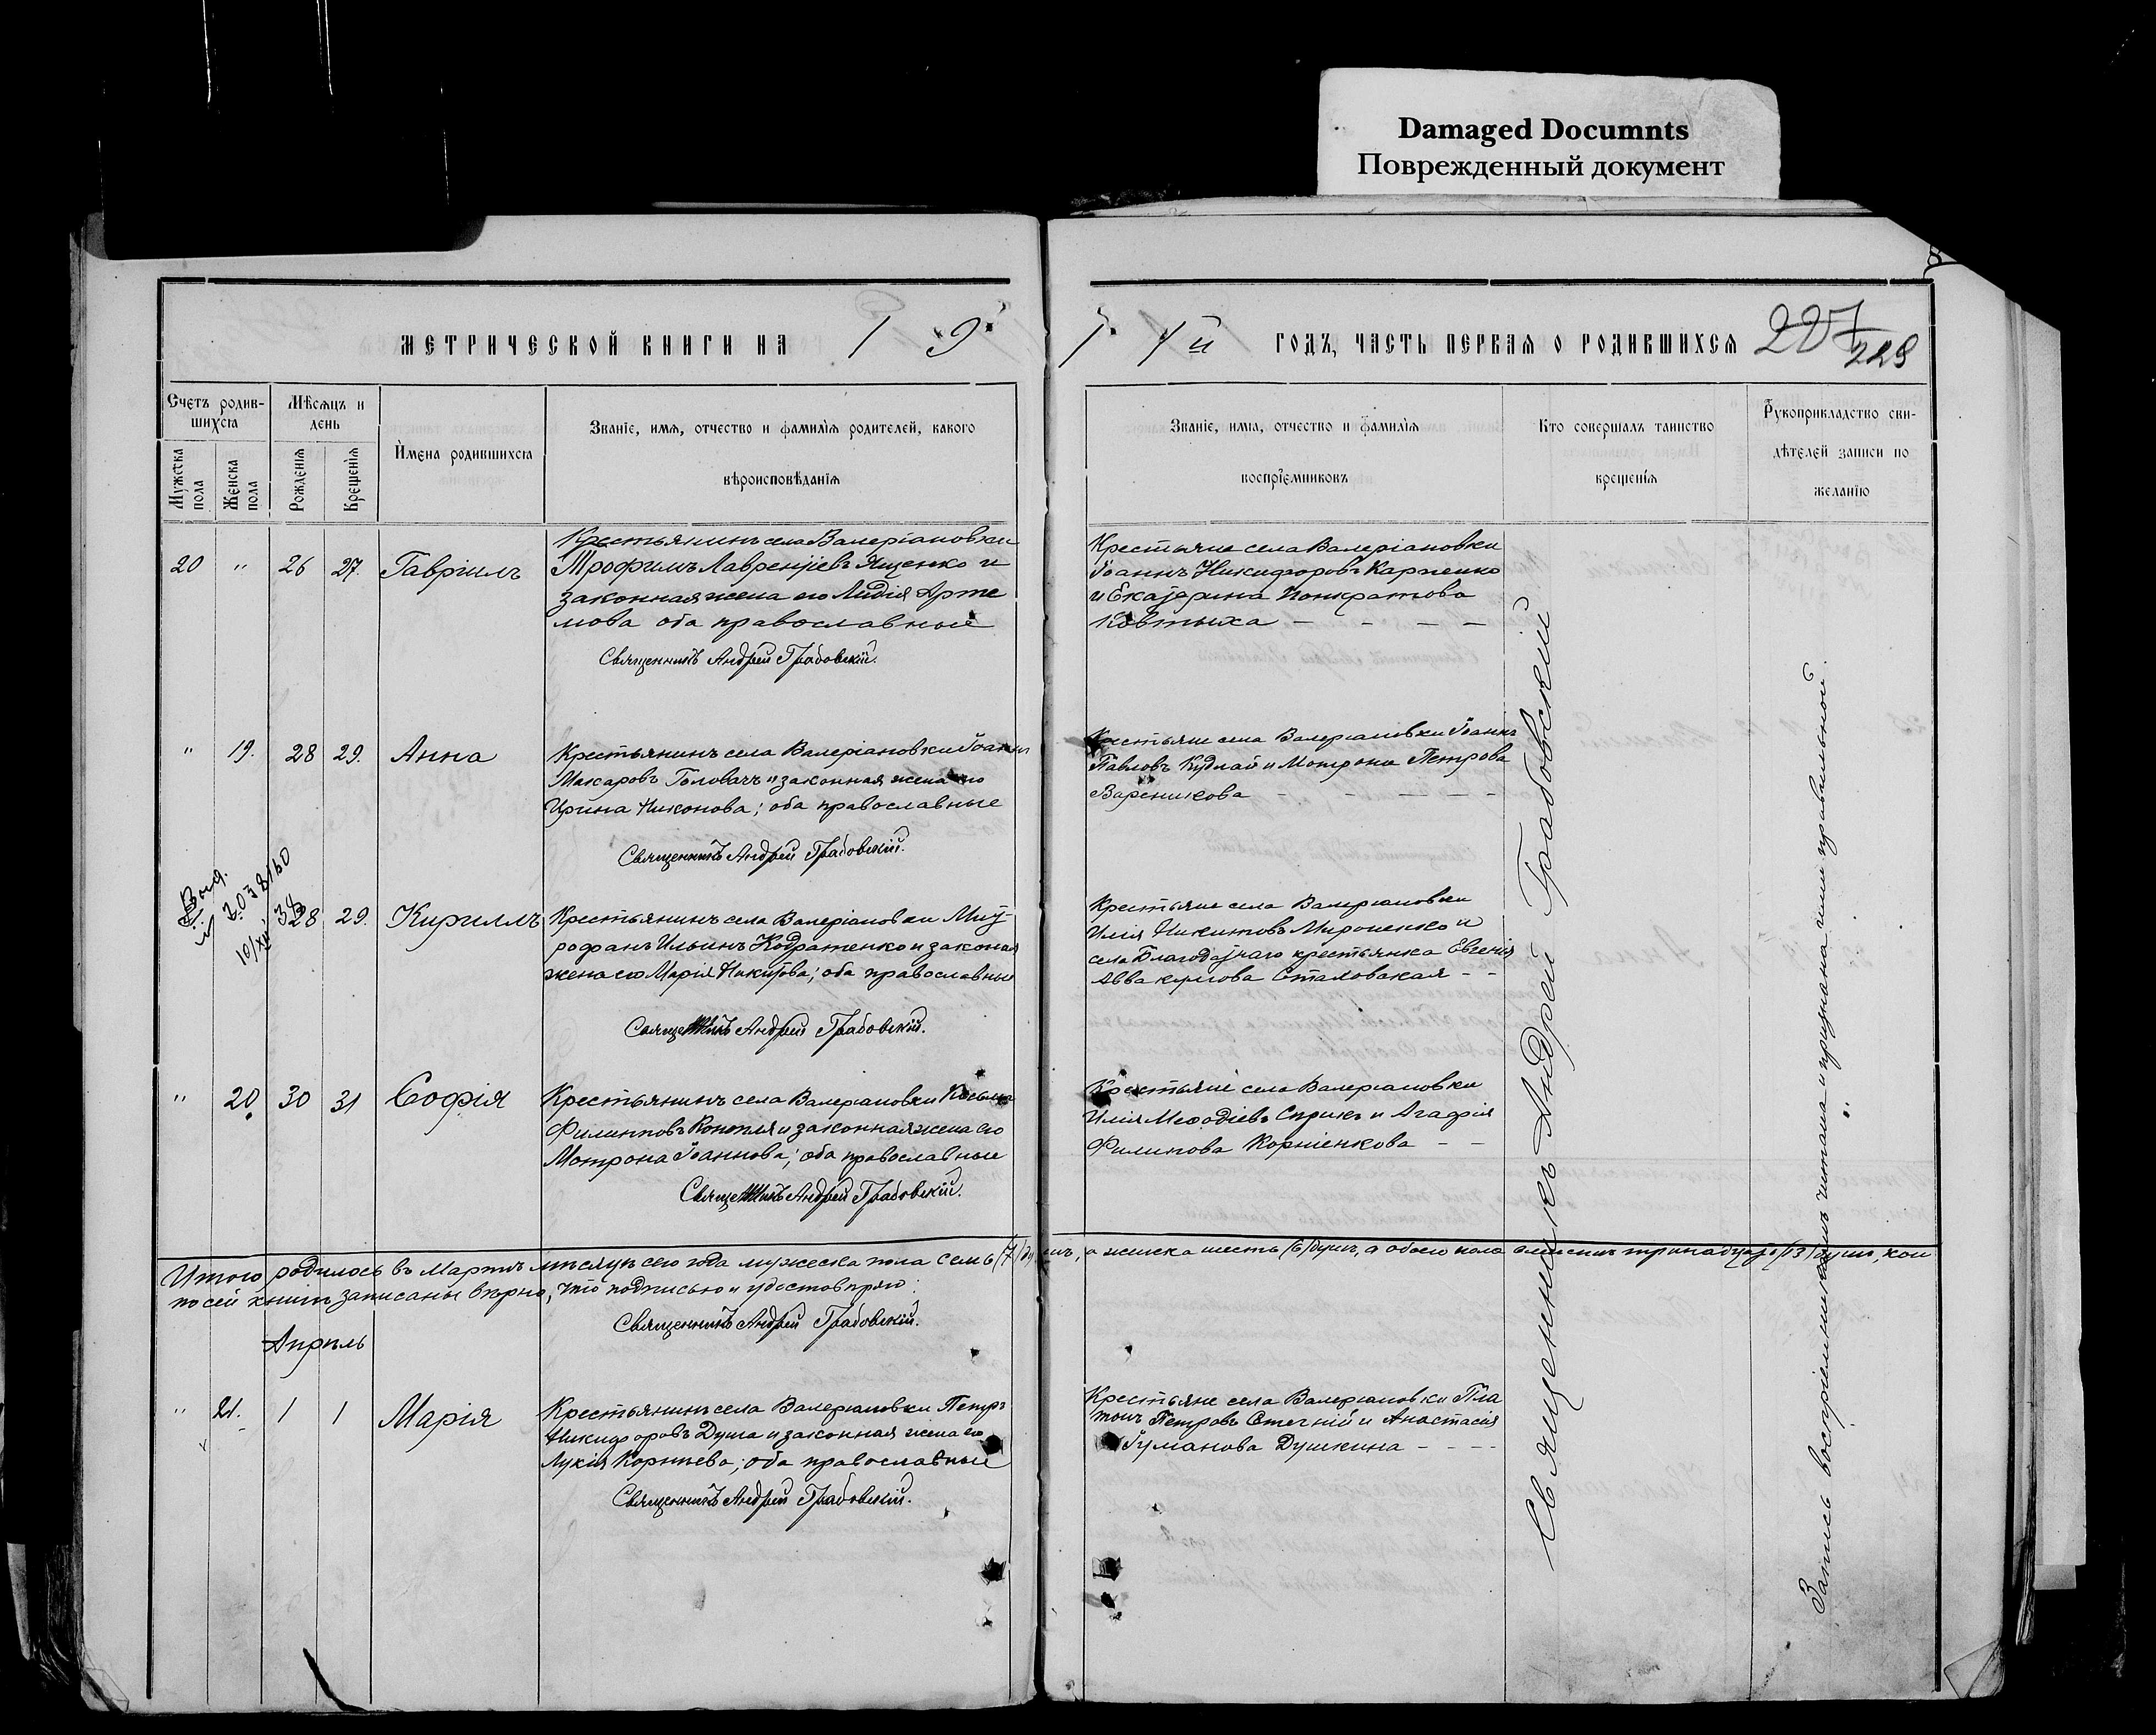 Damaged Documnts
Поврежденный документ
МЕТРИЧЕСКОЙ КНИГИ НА 1 9
1 4й ГОДЪ, ЧАСТЬ ПЕРВАЯ О РОДИВШИХСЯ 227
229
Счетъ родив-
шихся
Мѣсяцъ и
день
Мужеска
пола
Женска
пола
Рожденія
Крещенія
Имена родившихся
Званіе, имя, отчество и фамилія родителей, какого
вѣроисповѣданія
Званіе, имя, отчество и фамилія
воспріемниковъ
Кто совершалъ таинство
крещенія
Рукоприкладство сви-
дѣтелей записи по
желанію
20 " 26 27. Гавріилъ
Крестьянинъ села Валеріановки
Трофимъ Лаврентіевъ Ищенко и
законная жена его Лидія Арте
мова оба православные
Священникъ Андрей Грабовскій.
Крестьяне села Валеріановки
Іоаннъ Никифоровъ Карпенко
и Екатерина Панкратова
Ковтыха — — — —
" 19. 28 29. Анна
Крестьянинъ села Валеріановки Іоаннъ
Макаровъ Головачъ и законная жена его
Ирина Никонова; оба православные
Священникъ Андрей Грабовскій.
Крестьяне села Валеріановки Іоаннъ
Павловъ Кудлай и Мотрона Петрова
Вареникова — — — — —
28 29. Кириллъ
Крестьянинъ села Валеріановки Мит-
рофанъ Ильинъ Кодратенко и законая
жена его Марія Никитова; оба православные
Священникъ Андрей Грабовскій.
Крестьяне села Валеріановки
Илія Никитовъ Мироненко и
села Благодатнаго крестьянка Евгенія
Аввакумова Сталовская - -
" 20. 30 31 Софія
Крестьянинъ села Валеріановки Косьма
Филипповъ и законная жена его
Мотрона Іоаннова; оба православные
Священникъ Андрей Грабовскій.
Крестьяне села Валеріановки
Илія Меѳодіевъ Сприкъ и Агафія
Филипова Корніенкова — —
Итого родилось въ Мартѣ мѣсяцѣ сего года мужеска пола семь (7) душъ, а женска шесть (6) душъ, а обоего пола тринадцать (13) душъ, кои
по сей книгѣ записаны вѣрно, что подписью и удостовѣряю:
Священникъ Андрей Грабовскій.
Апрѣль
" 21. 1 1 Марія
Крестьянинъ села Валеріановки Петръ
Никифоровъ Душа и законная жена его
Лукія Корнѣева; оба православные
Священникъ Андрей Грабовскій.
Крестьяне села Валеріановки Пла
тонъ Петровъ Стегній и Анастасія
Гуманова Душкина - - - -
Священникъ Андрей Грабовскій
Запись воспріемникамъ читана и признана ими правильной.